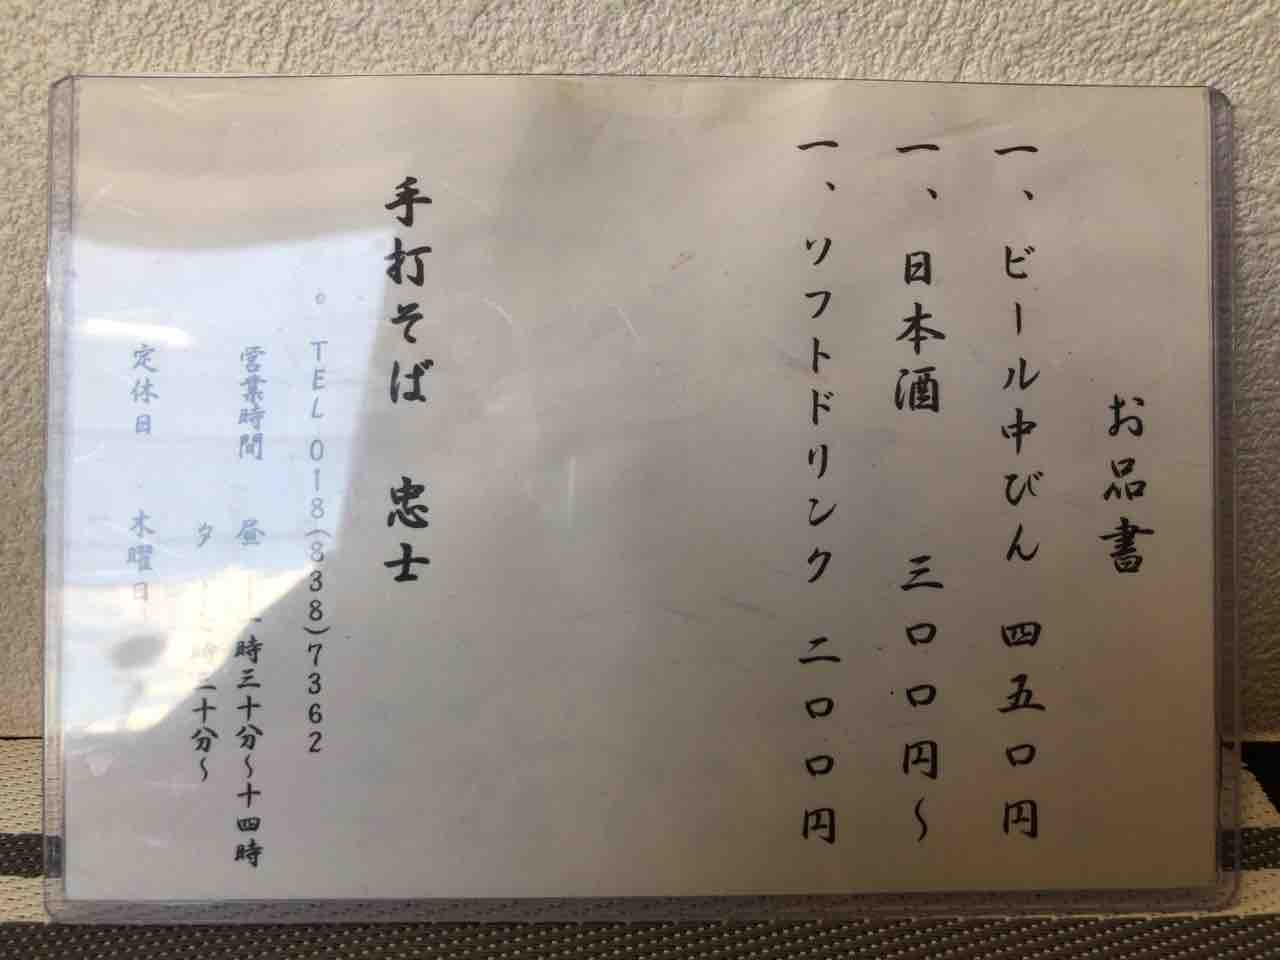 お品書
一、ビール中びん 四五〇円
一、日本酒 三〇〇円～
一、ソフトドリンク 二〇〇円
手打そば 忠士
。TEL 018(838)7362
営業時間 昼 時三十分～十四時
夕 時三十分～
定休日 木曜日